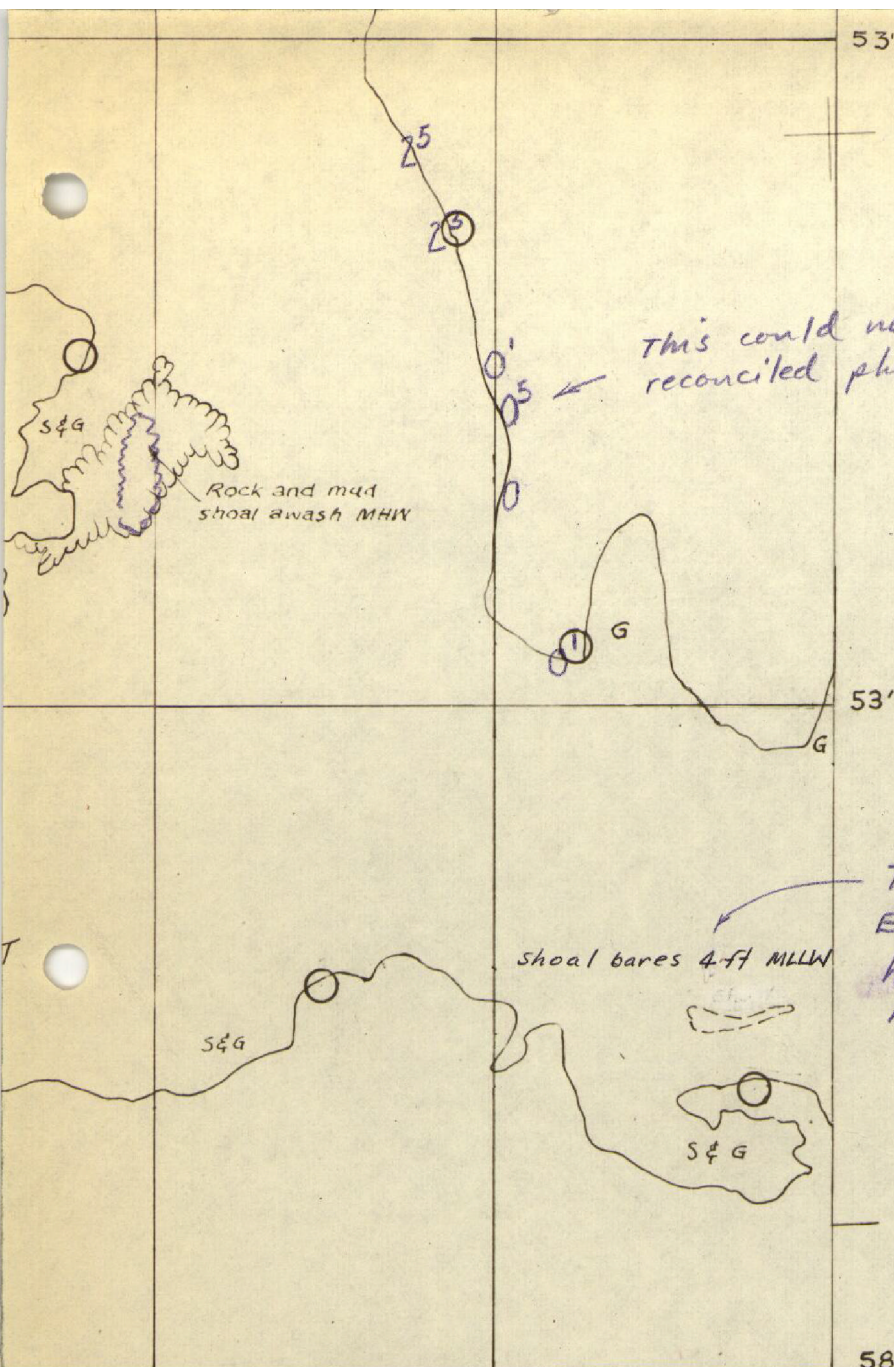 53'
2⁵
2⁵
0¹
This could
reconciled
0⁵
S&G
Rock and mud
shoal awash MHW
0
G
0¹
53'
G
T
shoal bares 4 ft MLLW
S&G
S & G
58